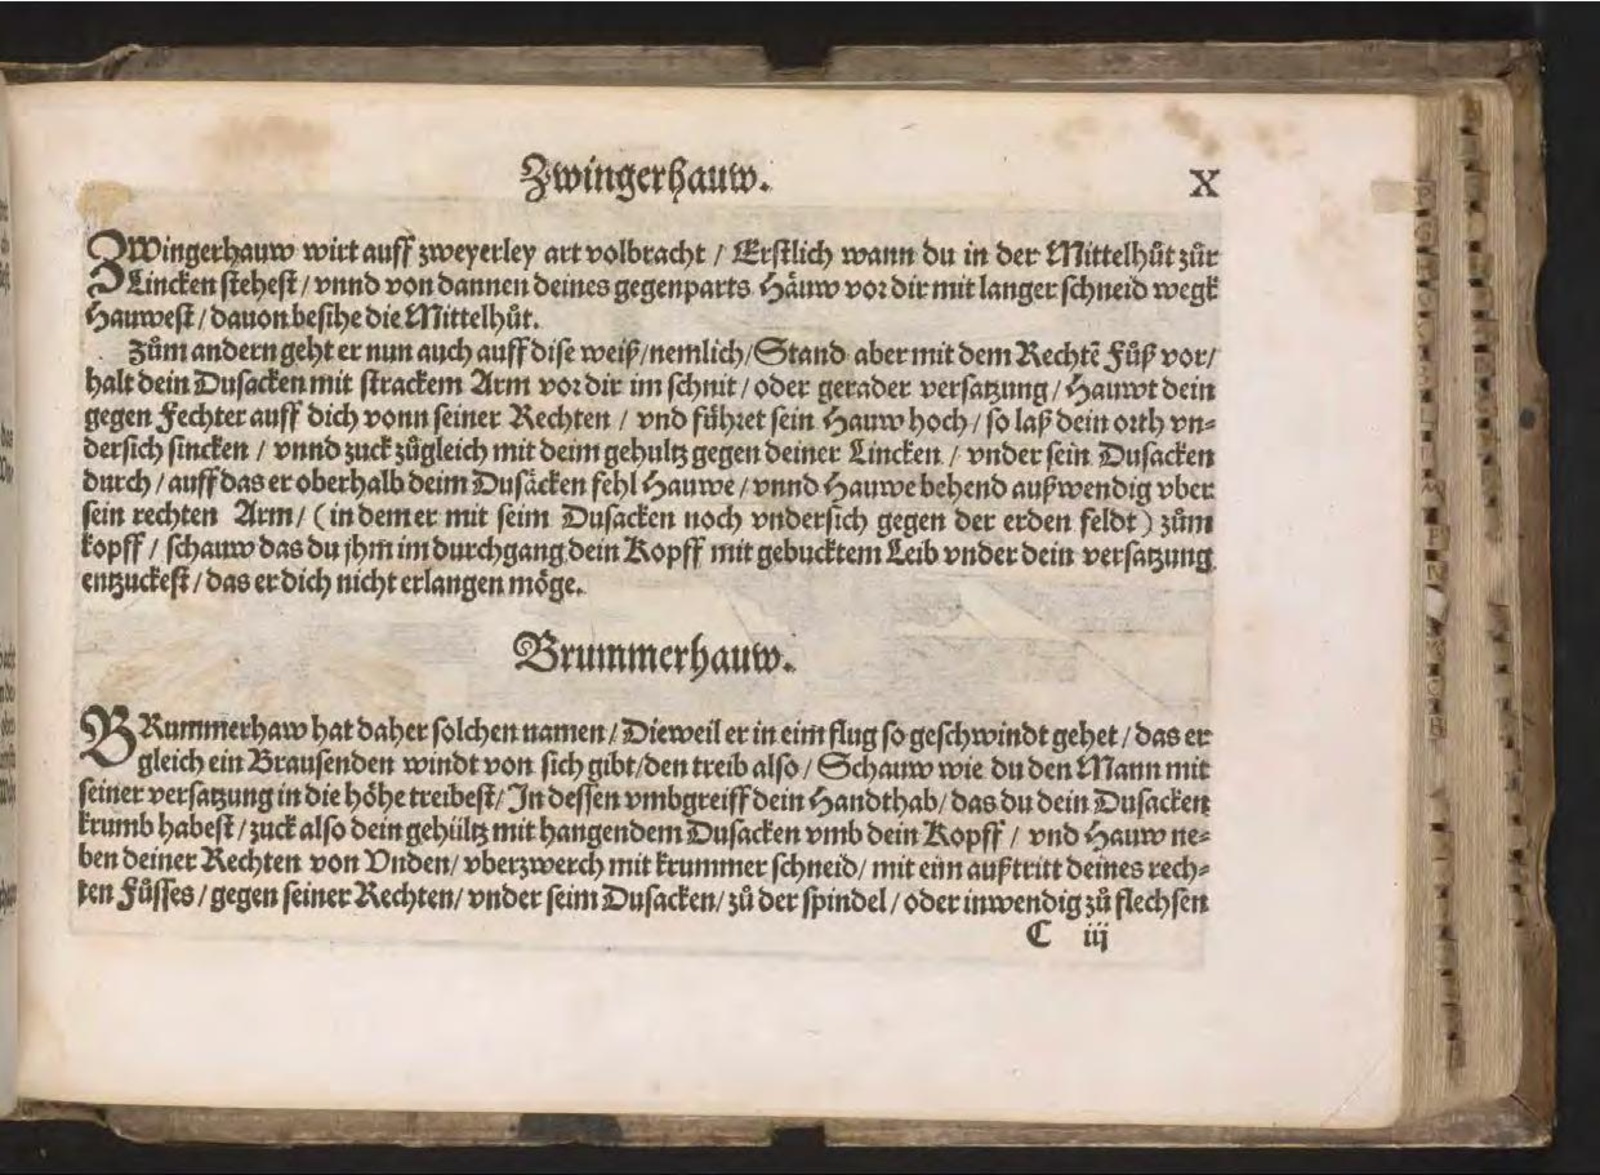 Zwingerhauw.
X
ZWingerhauw wirt auff zweyerley art volbracht / Erstlich wann du in der Mittelhůt zůr
Lincken stehest / vnnd von dannen deines gegenparts Häuw vor dir mit langer schneid wegk
Hauwest / dauon besihe die Mittelhůt.
Zům andern geht er nun auch auff dise weiß / nemlich / Stand aber mit dem Rechtẽ Fůß vor /
halt dein Dusacken mit strackem Arm vor dir im schnit / oder gerader versatzung / Hauwt dein
gegen Fechter auff dich vonn seiner Rechten / vnd führet sein Hauw hoch / so laß dein orth vn⸗
dersich sincken / vnnd zuck zůgleich mit deim gehultz gegen deiner Lincken / vnder sein Dusacken
durch / auff das er oberhalb deim Dusäcken fehl Hauwe / vnnd Hauwe behend außwendig vber
sein rechten Arm / (in dem er mit seim Dusacken noch vndersich gegen der erden feldt) zům
kopff / schauw das du jhm im durchgang dein Kopff mit gebucktem Leib vnder dein versatzung
entzuckest / das er dich nicht erlangen möge.
Brummerhauw.
BRummerhaw hat daher solchen namen / Dieweil er in eim flug so geschwindt gehet / das er
gleich ein Brausenden windt von sich gibt / den treib also / Schauw wie du den Mann mit
seiner versatzung in die höhe treibest / In dessen vmbgreiff dein Handthab / das du dein Dusacken
krumb habest / zuck also dein gehültz mit hangendem Dusacken vmb dein Kopff / vnd Hauw ne⸗
ben deiner Rechten von Vnden / vberzwerch mit krummer schneid / mit eim außtritt deines rech⸗
ten Fůsses / gegen seiner Rechten / vnder seim Dusacken / zů der spindel / oder inwendig zů flechsen
C iij